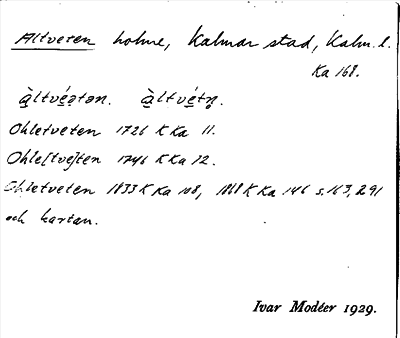 Altveten holme, Kalmar stad, Kalm. l.
Ka 168.
àltvéətən. àltvétn̥.
Ohletveten 1726 K Ka 11.
Ohle[tve]ten 1746 K Ka 12.
Ohletveten 1833 K Ka 108, 1868 K Ka 146 s. 163, 291
och kartan.
Ivar Modéer 1929.